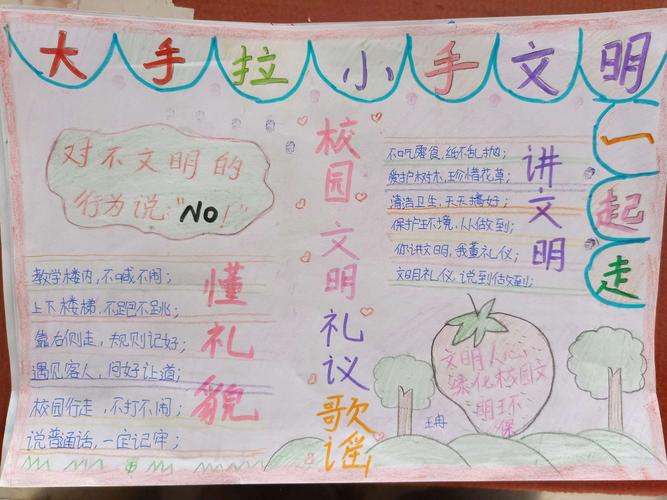 大手拉小手文明一起走
对不文明的
行为说“NO！”
校园文明礼议歌谣
懂礼貌
教学楼内,不喊不闹；
上下楼梯,不跑不跳；
靠右侧走,规则记好；
遇见客人,问好让道；
校园行走,不打不闹；
说普通话,一定记牢；
讲文明
不吃零食,纸不乱抛；
爱护树木,珍惜花草；
清洁卫生,天天搞好；
保护环境,人人做到；
你讲文明,我懂礼仪；
文明礼仪,说到做到；
文明人心
绿化校园文
明环
保
王冉